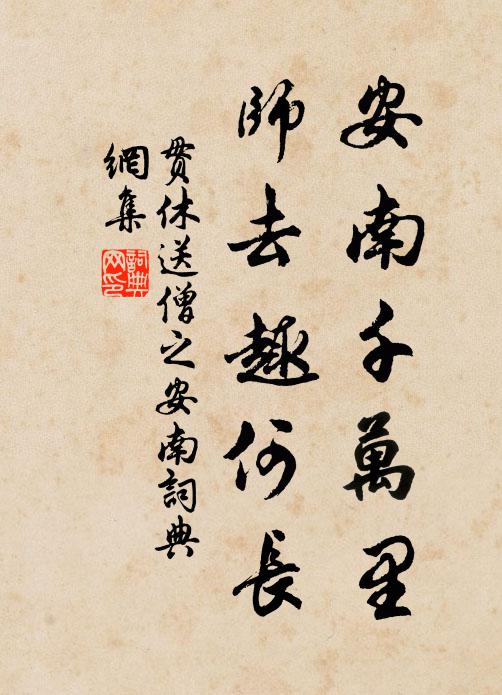 安南千萬里
師去趣何長
貫休送僧之安南詞典
網集
詞典
网印